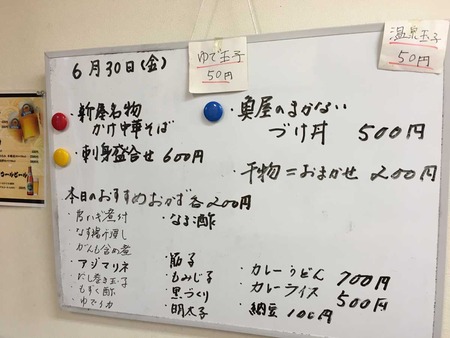 6月30日(金)
ゆで玉子
50円
温泉玉子
50円
・新屋名物
かけ中華そば
・刺身盛合せ 600円
・奥屋のまかない
づけ丼 500円
・干物=おまかせ 200円
本日のおすすめおかず各200円
・なす揚げ浸し
・がんも含め煮
・アジマリネ
・だし巻き玉子
・もずく酢
・ゆでイカ
・なま酢
・筋子
・もみじ子
・黒づくり
・明太子
・カレーうどん 700円
・カレーライス 500円
・納豆 100円